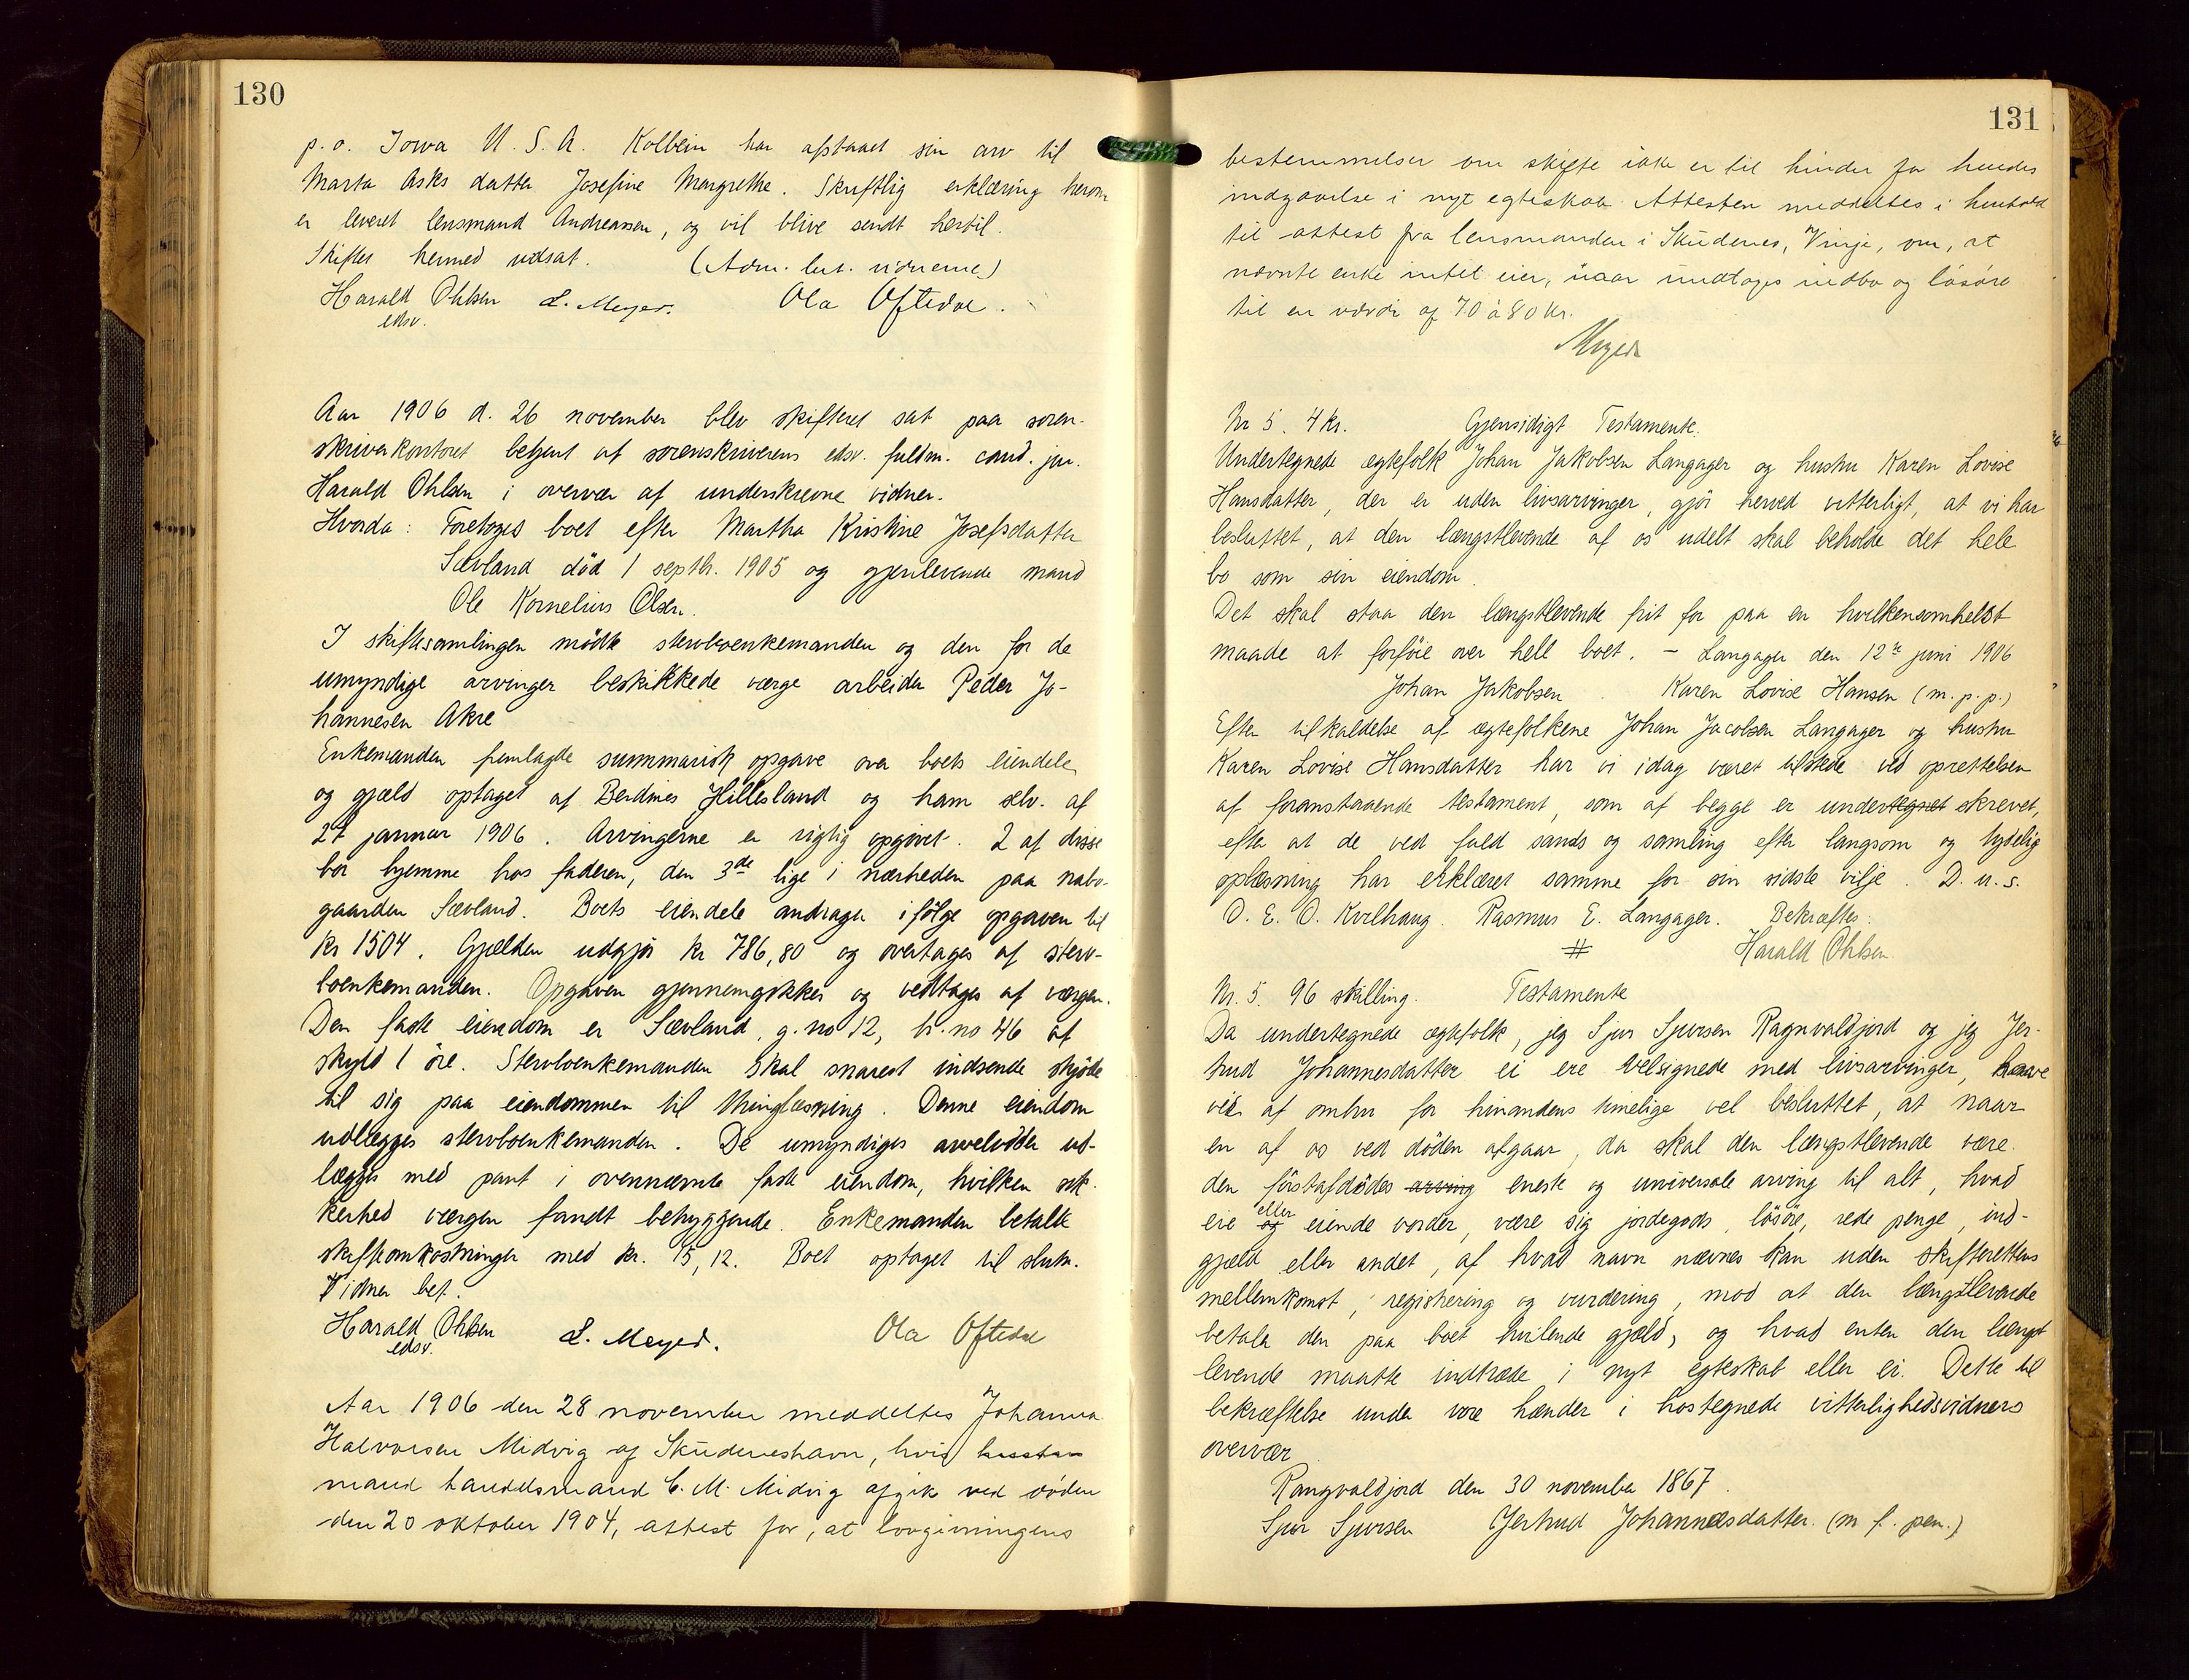 130
p. o. Iowa U. S. A. Kolbein har afstaaet sin arv til
Marta Asks datter Josefine Margrethe. Skriftlig erklæring herom
er leveret lensmand Andreassen, og vil blive sendt hertil.
Skiftet hermed udsat. (Adm. bet. vidnerne)
Harald Ohlsen L. Meyer. Ola Oftedal.
edsv.
Aar 1906 d. 26 november blev skifteret sat paa soren-
skriverkontoret betjent af sorenskriverens edsv. fuldm. cand. jur.
Harald Ohlsen i overvær af underskrevne vidner.
Hvorda: Foretoges boet efter Martha Kristine Josefsdatter
Sævland död 1 septbr. 1905 og gjenlevende mand
Ole Kornelius Olsen.
I skiftesamlingen mödte stervboenkemanden og den for de
umyndige arvinger beskikkede værge arbeider Peder Jo-
hannesen Akre
Enkemanden fremlagde summarisk opgave over boets eiendele
og gjæld optaget af Berdines Hillesland og ham selv. af
27 januar 1906. Arvingerne er rigtig opgivet. 2 af disse
bor hjemme hos faderen, den 3de lige i nærheden paa nabo-
gaarden Sævland. Boets eiendele andrager ifölge opgaven til
kr 1504. Gjælden udgjör kr 786,80 og overtages af sterv-
boenkemanden. Opgaven gjennemgikkes og vedtages af værgen.
Den faste eiendom er Sævland, g. no 12, br. no 46 af
skyld 1 öre. Stervboenkemanden skal snarest indsende skjöde
til sig paa eiendommen til thinglæsning. Denne eiendom
udlægges stervboenkemanden. De umyndiges arvelodder ud-
lægges med pant i ovennævnte faste eiendom, hvilken sik-
kerhed værgen fandt betryggende. Enkemanden betalte
skifteomkostninger med kr. 15,12. Boet optaget til slutn.
Vidner bet.
Harald Ohlsen L. Meyer. Ola Oftedal
edsv.
Aar 1906 den 28 november meddeltes Johanna
Halvorsen Midvig af Skudeneshavn, hvis
mand handelsmand C. M. Midvig afgik ved döden
den 20 oktober 1904, attest for, at lovgivningens
131
bestemmelser om skifte ikke er til hinder for hendes
indgaaelse i nyt egteskab. Attesten meddeltes i henhold
til attest fra lensmanden i Skudenes, Vinje, om, at
nævnte enke intet eier, naar undtages indbo og lösöre
til en værdi af 70 à 80 kr.
Meyer
Nr 5. 4 kr. Gjensidigt Testamente.
Undertegnede ægtefolk Johan Jakobsen Langager og hustru Karen Lovise
Hansdatter, der er uden livsarvinger, gjör herved vitterligt, at vi har
besluttet, at den længstlevende af os udelt skal beholde det hele
bo som sin eiendom.
Det skal staa den længstlevende frit for paa en hvilkensomhelst
maade at forföie over hele boet. – Langager den 12te juni 1906
Johan Jakobsen. Karen Lovise Hansen (m. p. p.)
Efter tilkaldelse af ægtefolkene Johan Jacobsen Langager og hustru
Karen Lovise Hansdatter har vi idag været tilstede ved oprettelsen
af foranstaaende testament, som af begge er undertegnet skrevet,
efter at de ved fuld sands og samling efter langsom og tydelig
oplæsning har erklæret samme for sin sidste vilje. D. u. s.
O. E. O. Kvilhaug. Rasmus E. Langager. Bekræftes:
# Harald Ohlsen
Nr. 5. 96 skilling. Testamente
Da undertegnede ægtefolk, jeg Sjur Sjursen Ragnvaldjord og jeg Jer-
trud Johannesdatter ei ere velsignede med livsarvinger, have
vi af omhu for hinandens timelige vel besluttet, at naar
en af os ved döden afgaar, da skal den længstlevende være
den förstafdödes arving eneste og universale arving til alt, hvad
eie og eller eiende vorder, være sig jordegods, lösöre, rede penge, ind-
gjæld eller andet, af hvad navn nævnes kan uden skifterettens
mellemkomst, registrering og vurdering, mod at den længstlevende
betaler den paa boet hvilende gjæld, og hvad enten den længst
levende maatte indtræde i nyt egteskab eller ei. Dette til
bekræftelse under vore hænder i hostegnede vitterlighedsvidners
overvær
Rangvaldjord den 30 november 1867.
Sjur Sjursen Gjertrud Johannesdatter. (m. f. pen.)